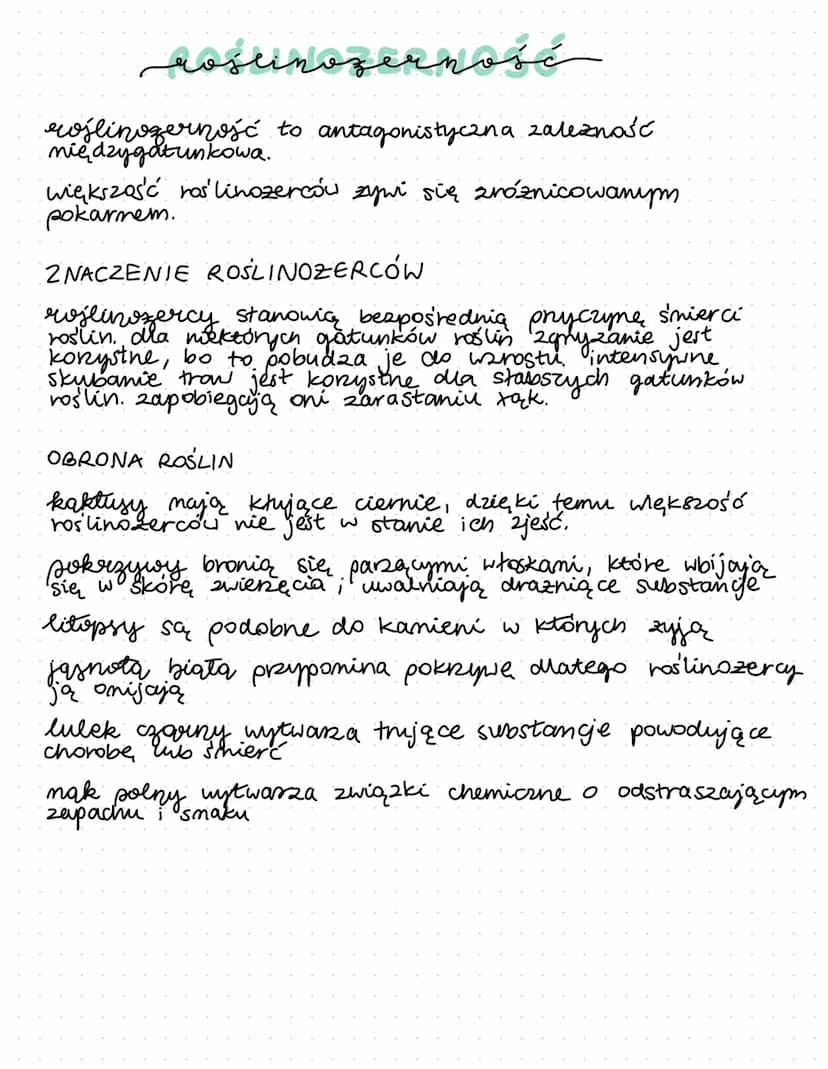 ROŚLINOŻERNOŚĆ
roślinożerność to antagonistyczna zależność
międzygatunkowa.
większość roślinożerców żywi się zróżnicowanym
pokarmem.
ZNACZENIE ROŚLINOŻERCÓW
roślinożercy stanowią bezpośrednią przyczynę śmierci
roślin. dla niektórych gatunków roślin zgryzanie jest
korzystne, bo to pobudza je do wzrostu intensywne
skubanie traw jest korzystne dla słabszych gatunków
roślin. zapobiegają oni zarastaniu łąk.
OBRONA ROŚLIN
kaktusy mają kłujące ciernie, dzięki temu większość
roślinożerców nie jest w stanie ich zjeść.
pokrzywy bronią się parzącymi włoskami, które wbijają
się w skórę zwierzęcia i uwalniają drażniące substancje
litopsy są podobne do kamieni w których żyją
jasnota biała przypomina pokrzywę dlatego roślinożercy
ją omijają
lulek czarny wytwarza trujące substancje powodujące
chorobę lub śmierć
mak polny wytwarza związki chemiczne o odstraszającym
zapachu i smaku